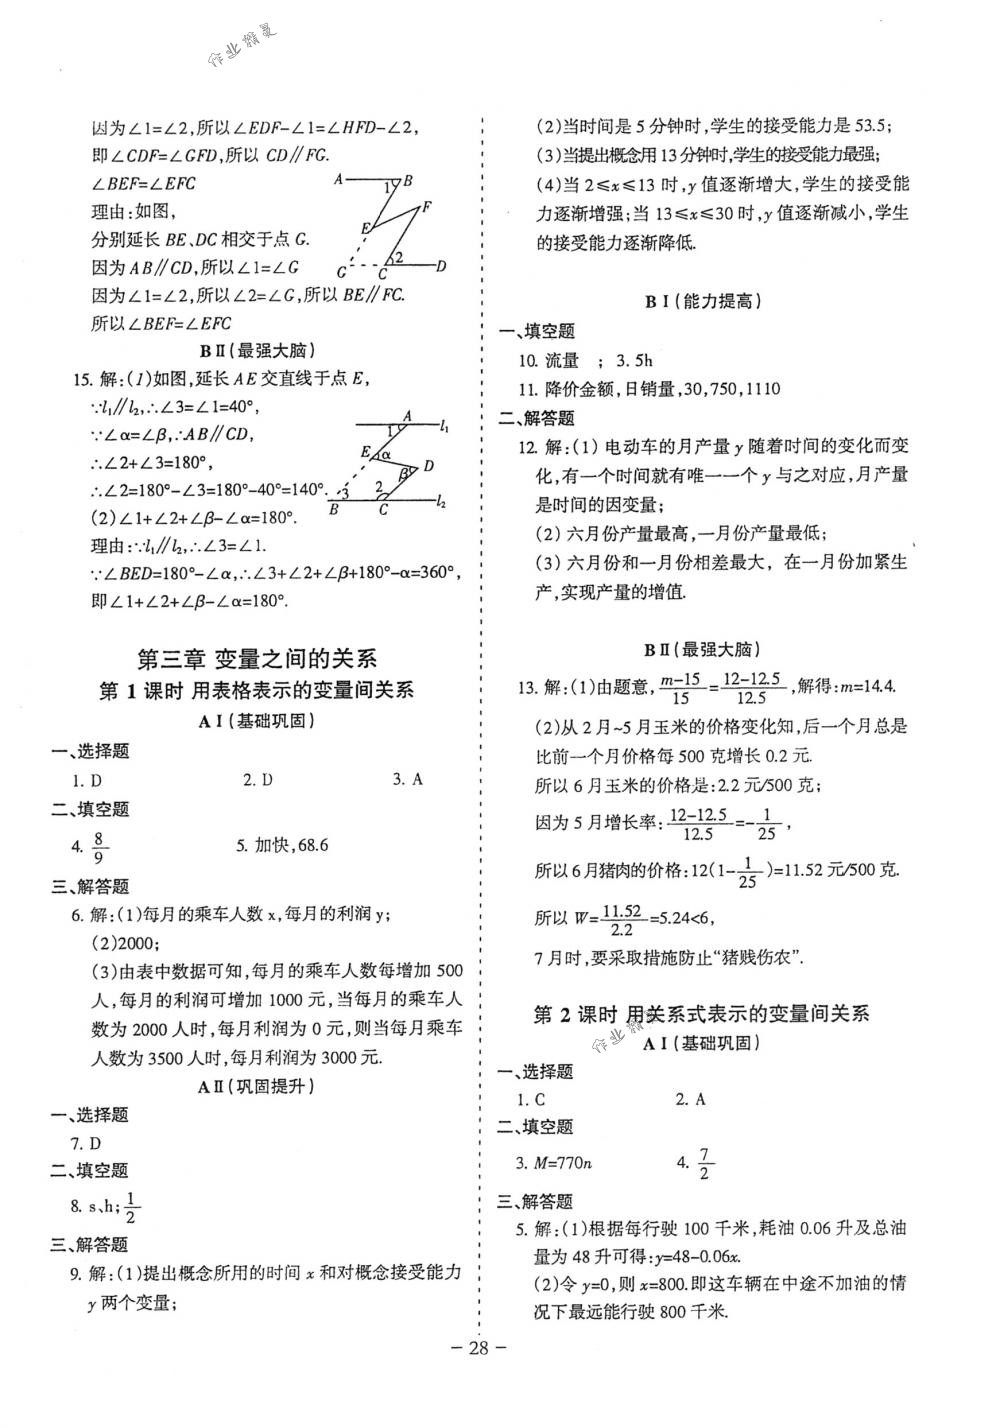 作业精灵
因为∠1=∠2,所以∠EDF-∠1=∠HFD-∠2,
即∠CDF=∠GFD,所以 CD∥FG.
∠BEF=∠EFC
理由:如图,
分别延长 BE、DC 相交于点 G.
因为 AB∥CD,所以∠1=∠G
因为∠1=∠2,所以∠2=∠G,所以 BE∥FC.
所以∠BEF=∠EFC
A 1 B
F
E
G C 2 D
BⅡ(最强大脑)
15. 解:(1)如图,延长 AE 交直线于点 E,
∵l₁∥l₂,∴∠3=∠1=40°,
∵∠α=∠β,∴AB∥CD,
∴∠2+∠3=180°,
∴∠2=180°-∠3=180°-40°=140°.
(2)∠1+∠2+∠β-∠α=180°.
理由:∵l₁∥l₂,∴∠3=∠1.
∵∠BED=180°-∠α,∴∠3+∠2+∠β+180°-α=360°,
即∠1+∠2+∠β-∠α=180°.
A
1 l₁
E α
β D
3 2
B C l₂
第三章 变量之间的关系
第 1 课时 用表格表示的变量间关系
AⅠ(基础巩固)
一、选择题
1. D 2. D 3. A
二、填空题
4. 8/9 5. 加快,68.6
三、解答题
6. 解:(1)每月的乘车人数 x,每月的利润 y;
(2)2000;
(3)由表中数据可知,每月的乘车人数每增加 500
人,每月的利润可增加 1000 元,当每月的乘车人
数为 2000 人时,每月利润为 0 元,则当每月乘车
人数为 3500 人时,每月利润为 3000 元.
AⅡ(巩固提升)
一、选择题
7. D
二、填空题
8. s、h; 1/2
三、解答题
9. 解:(1)提出概念所用的时间 x 和对概念接受能力
y 两个变量;
(2)当时间是 5 分钟时,学生的接受能力是 53.5;
(3)当提出概念用 13 分钟时,学生的接受能力最强;
(4)当 2≤x≤13 时,y 值逐渐增大,学生的接受能
力逐渐增强;当 13≤x≤30 时,y 值逐渐减小,学生
的接受能力逐渐降低.
BⅠ(能力提高)
一、填空题
10. 流量 ; 3. 5h
11. 降价金额,日销量,30,750,1110
二、解答题
12. 解:(1) 电动车的月产量 y 随着时间的变化而变
化,有一个时间就有唯一一个 y 与之对应,月产量
是时间的因变量;
(2) 六月份产量最高,一月份产量最低;
(3) 六月份和一月份相差最大，在一月份加紧生
产,实现产量的增值.
BⅡ(最强大脑)
13. 解:(1)由题意, m-15/15 = 12-12.5/12.5 ,解得:m=14.4.
(2)从 2 月~5 月玉米的价格变化知,后一个月总是
比前一个月价格每 500 克增长 0.2 元.
所以 6 月玉米的价格是:2.2 元/500 克;
因为 5 月增长率: 12-12.5/12.5 =- 1/25 ,
所以6月猪肉的价格:12(1- 1/25 )=11.52 元/500 克.
所以 W= 11.52/2.2 =5.24<6,
7 月时,要采取措施防止“猪贱伤农”.
第 2 课时 用关系式表示的变量间关系
作业精灵
AⅠ(基础巩固)
一、选择题
1. C 2. A
二、填空题
3. M=770n 4. 7/2
三、解答题
5. 解:(1)根据每行驶 100 千米,耗油 0.06 升及总油
量为 48 升可得:y=48-0.06x.
(2)令 y=0,则 x=800.即这车辆在中途不加油的情
况下最远能行驶 800 千米.
- 28 -